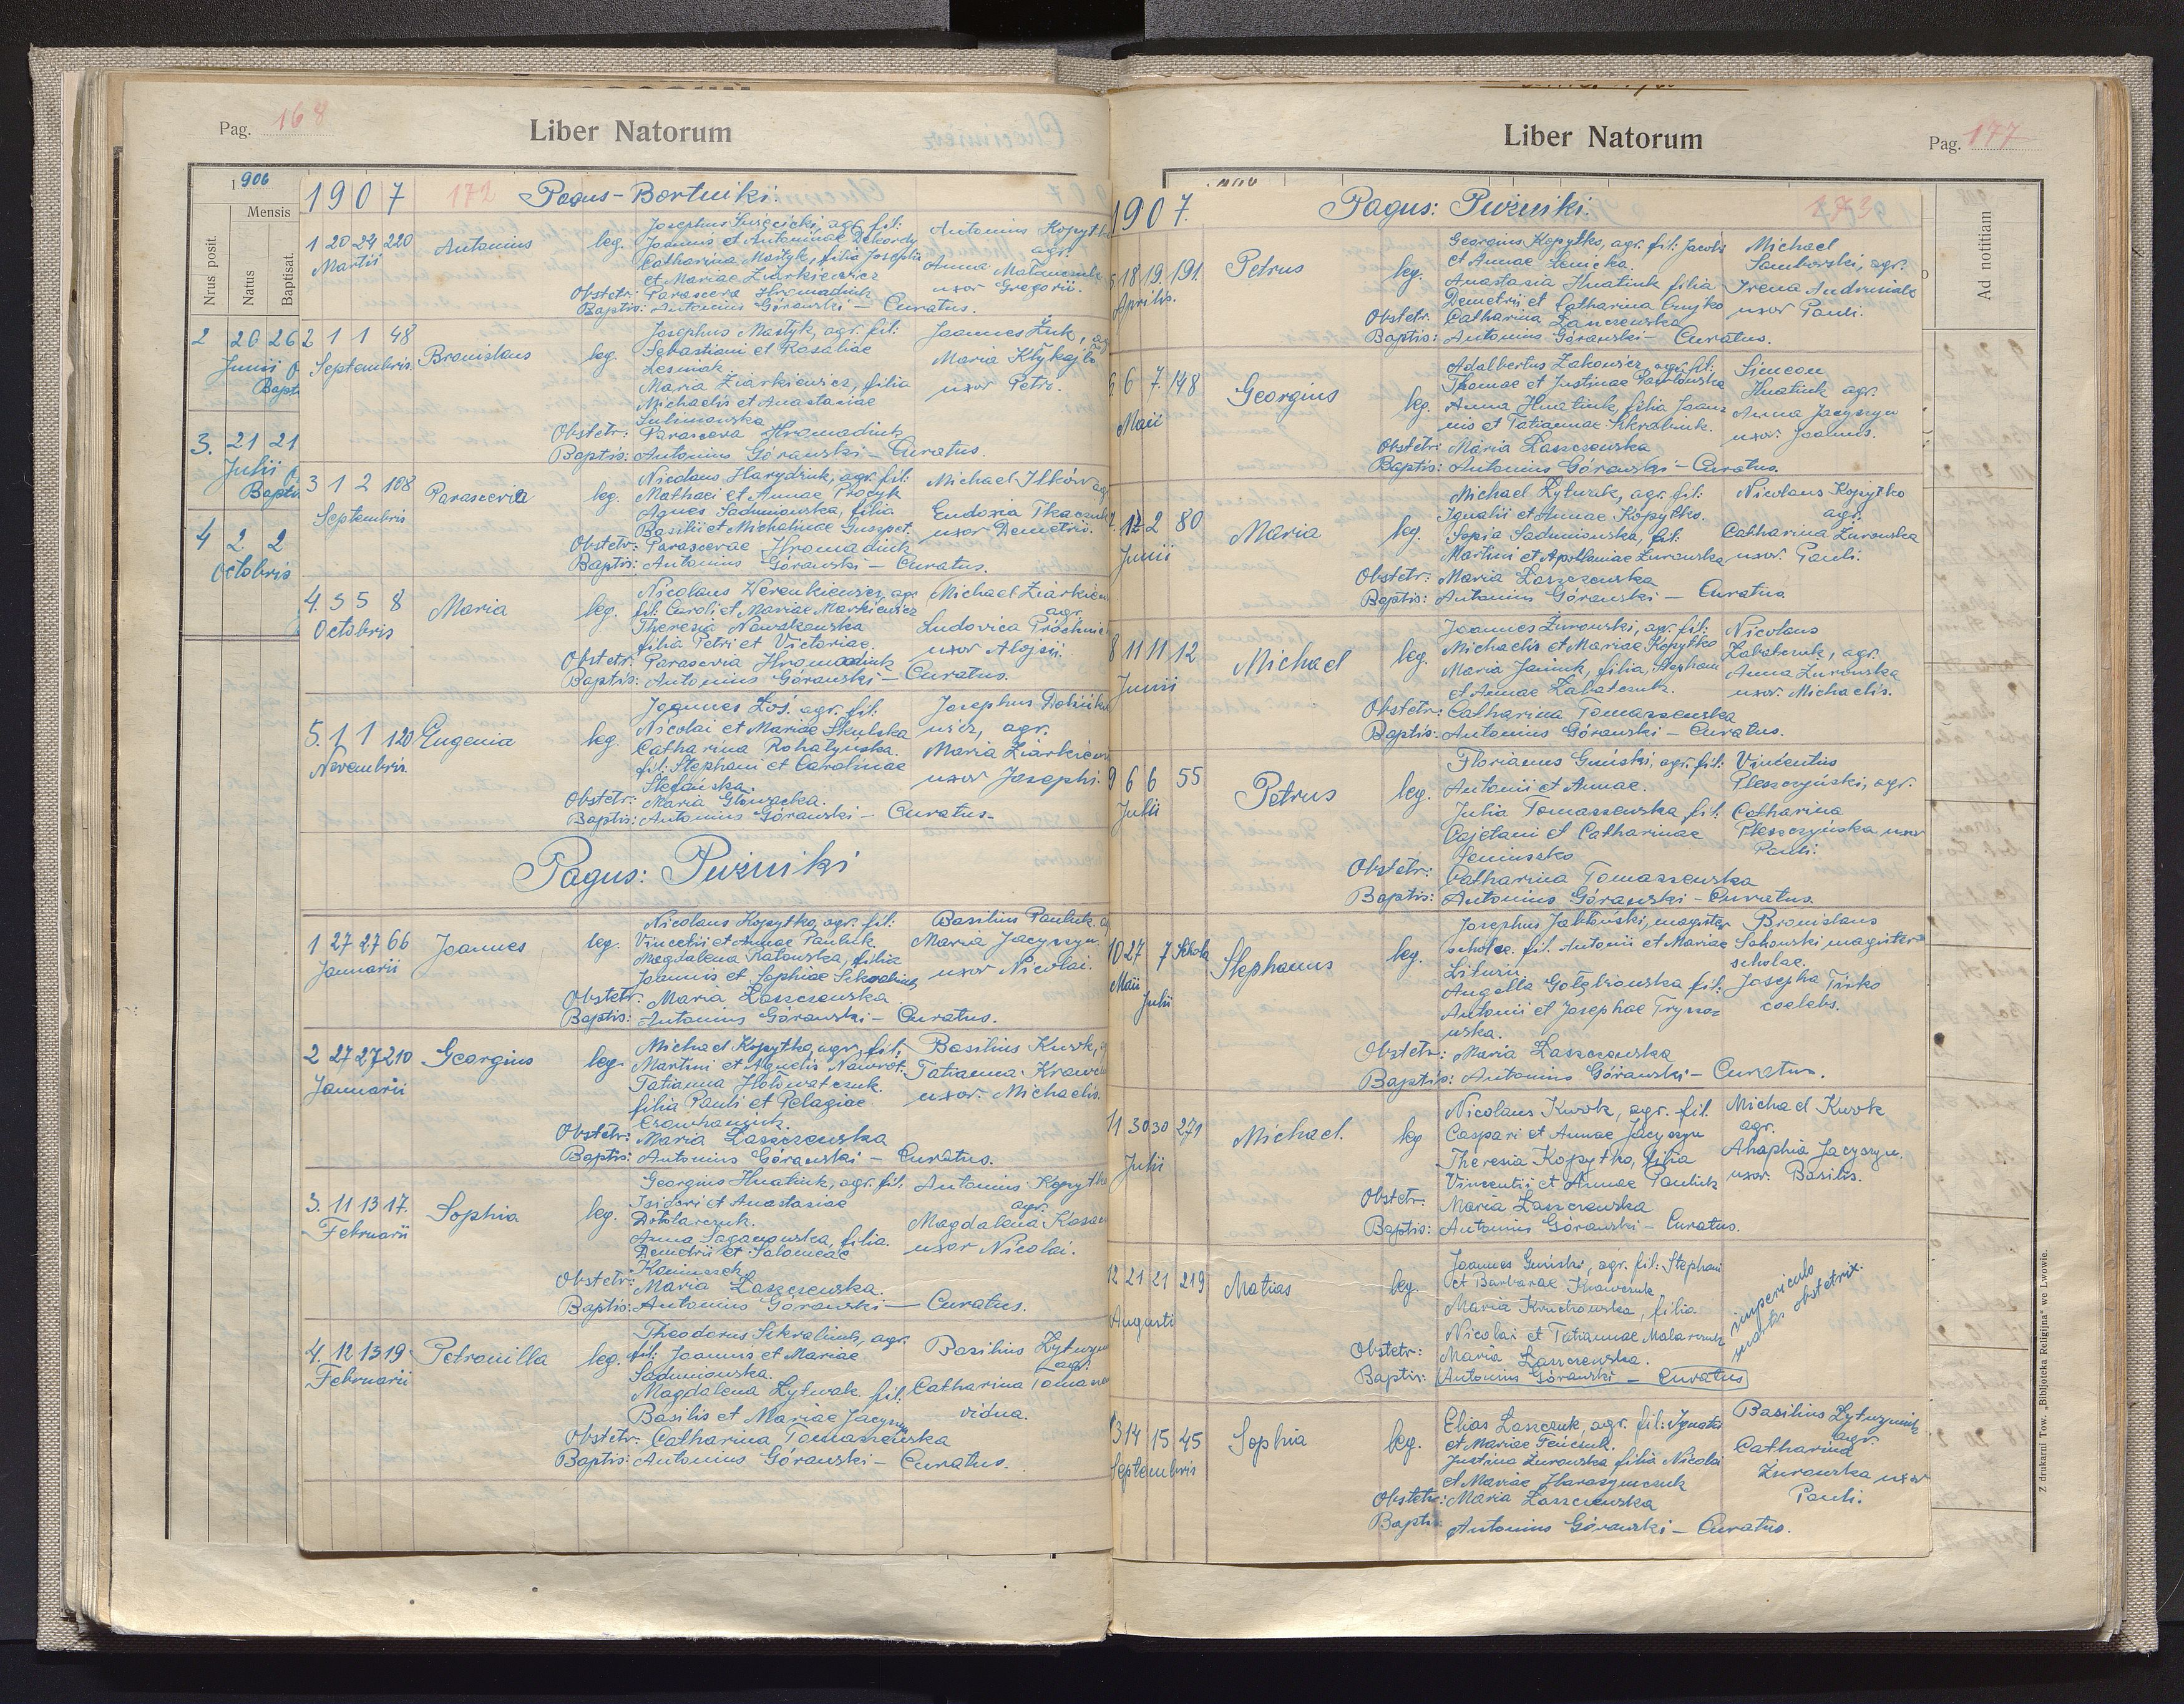 Pag. 168
Liber Natorum
1906
Mensis
Nrus posit.
Natus
Baptisat.
2 26 26
Junii
Bapt
3. 21 21
Julii
Baptis
4 2 2
Octobris
1907 172 Pagus-Bortniki.
1 20 24 220
Martii
Antonius
leg.
Josephus Święcicki, agr. fil:
Joannis et Antoninae Dekordy
Catharina Mastyk, filia Josephi
et Mariae Ziarkiewicz
Antonius Kopytko
agr.
Anna
uxor Gregorii.
Obstetr: Parasceva Hromadiuk
Baptis: Antonius Górawski Curatus.
2 1 1 48
Septembris.
Bronislaus
leg.
Josephus Mastyk, agr. fil:
Sebastiani et Rosaliae
Lesniak
Maria Ziarkiewicz, filia
Michaelis et Anastasiae
Sulimowska
Joannes Żuk,
Maria
uxor Petri.
Obstetr: Parasceva Hromadiuk
Baptis: Antonius Górawski - Curatus.
3 1 2 108
Septembris
Parascevia
leg.
Nicolaus Harydziuk, agr. fil:
Mathaei et Annae Procyk
Agnes Sadmiowska, filia
Basilii et Michalinae Guszpet.
Michael Ilków
Eudoxia Tkaczuk
uxor Demetrii.
Obstetr: Parascevae Hromadiuk
Baptis: Antonius Górawski - Curatus.
4. 5 5 8
Octobris
Maria
leg.
Nicolaus Werenkiewicz, agr
fil: Caroli et Mariae Markiewicz
Theresia Nowakowska
filia Petri et Victoriae.
Michael Ziarkiew
agr.
Ludovica Próchni
uxor Alojsii.
Obstetr: Parascevia Hromadiuk
Baptis: Antonius Górawski - Curatus.
5. 1 1 120
Novembris.
Eugenia
leg.
Joannes Łoś. agr. fil:
Nicolai et Mariae Skulska
Catharina Rohatynska.
fil: Stephani et Carolinae
Stefańska.
Josephus
wicz, agr.
Maria Ziarkiew
uxor Josephi.
Obstetr: Maria Głowacka.
Baptis: Antonius Górawski - Curatus-
Pagus: Pużniki
1 27 27 66
Januarii
Joannes
leg.
Nicolaus Kopytko, agr. fil:
Vincetii et Annae Pauluk
Magdalena Ratowska, filia
Joannis et Sophiae Sekrabiuk
Basilius Pauluk.
Maria Jacyszyn.
uxor Nicolai.
Obstetr. Maria Łaszczewska
Baptis: Antonius Górawski - Curatus.
2 27 27 210
Januarii
Georgius
leg.
Michael Kopytko, agr. fil:
Martini et Agnetis Nawrót.
Tatianna Hołowatczuk.
filia Pauli et Pelagiae
Basilius Kwok,
Tatianna Krawc
uxor. Michaelis.
Obstetr: Maria Łaszczewska
Baptis: Antonius Górawski - Curatus.
3. 11 13 17.
Februarii
Sophia
leg.
Georgius Hnatiuk, agr. fil:
Isidori et Anastasiae
Dotolarczuk.
Anna Saganowska, filia.
Demetrii et Salomeae
Antonius Kopytko
agr.
Magdalena
uxor Nicolai.
Obstetr: Maria Łaszczewska.
Baptis: Antonius Górawski - Curatus.
4. 12 13 19
Februarii
Petronilla
leg.
Theodorus Sekrabiuk, agr.
fil: Joannis et Mariae
Sadmiowska.
Magdalena Łytwak, fil:
Basilis et Mariae Jacyszyn
Basilius
agr.
Catharina Tomasz
vidua.
Obstetr: Catharina Tomaszewska
Baptis: Antonius Górawski - Curatus.
Liber Natorum
Pag. 177
Ad notitiam
1907. Pagus: Pużniki. 173
5 18 19. 191.
Aprilis.
Petrus
leg.
Georgius Kopytko, agr. fil: Jacobi
et Annae
Anastasia Hnatiuk filia
Demetrii et Catharina
Michael
Samborski, agr.
Irena Andrusiak
uxor Pauli.
Obstetr. Catharina Łanczewska
Baptis: Antonius Górawski - Curatus.
6. 6 7. 148
Maii
Georgius
leg.
Adalbertus Zakowicz, agr. fil:
Thomae et Justinae Pawłowska
Anna Hnatiuk, filia Joan
nis et Tatiannae Sekrabiuk.
Simeon
Hnatiuk agr.
Anna Jacyszyn
uxor. Joannis.
Obstetr: Maria Łaszczewska
Baptis: Antonius Górawski - Curatus.
7. 12 2 80
Junii
Maria
leg.
Michael Łytwak, agr. fil:
Ignatii et Annae Kopytko.
Sofia Sadmiowska, fil:
Martini et Apolloniae Żurowska
Nicolaus Kopytko
agr.
Catharina Żurowska
uxor. Pauli.
Obstetr: Maria Łaszczewska
Baptis: Antonius Górawski - Curatus
8 11 11 12
Junii
Michael
leg.
Joannes Żurowski, agr. fil:
Michaelis et Mariae Kopytko
Maria Janiuk, filia, Stephani
et Annae Zabatczuk.
Nicolaus
Zabatczuk, agr.
Anna Żurowska
uxor. Michaelis.
Obstetr: Catharina Tomaszewska
Baptis: Antonius Górawski - Curatus.
9 6 6 55
Julii
Petrus
leg.
Florianus Guński, agr. fil:
Antonii et Annae.
Julia Tomaszewska fil:
Cajetani et Catharinae
Vincentius
Pleszczyński, agr.
Catharina
Pleszczyńska uxor
Pauli.
Obstetr: Catharina Tomaszewska
Baptis: Antonius Górawski - Curatus.
10 27 7 Schola
Maii
Julii
Stephanus
leg.
Josephus Jabłoński, magister
scholae. fil. Antonii et Mariae
Lituriu.
Angella Gołębiowska fil:
Antonii et Josephae Trysso
wska.
Bronislaus
Sokowski magister
scholae.
Josepha Tirko
coelebs.
Obstetr: Maria Łaszczewska
Baptis: Antonius Górawski - Curatus.
11 30 30 271
Julii
Michael.
leg
Nicolaus Kwok, agr. fil.
Caspari et Annae Jacyszyn
Theresia Kopytko, filia
Vincentii et Annae Pauluk
Michael Kwok
agr.
Ahaphia Jacyszyn.
uxor. Basilis.
Obstetr. Maria Łaszczewska
Baptis: Antonius Górawski - Curatus.
12 21 21 219
Augusti
Matias
leg.
Joannes Guński, agr. fil: Stephani
et Barbarae Krawczuk
Maria Kruchowska, filia
Nicolai et Tatiannae Malarczuk
in periculo
mortis obstetrix.
Obstetr: Maria Łaszczewska.
Baptis: Antonius Górawski - Curatus
13 14 15 45
Septembris
Sophia
leg.
Elias Łaszczuk, agr. fil: Ignatii
et Mariae Fenczuk.
Justina Żurowska filia Nicolai
et Mariae Harasymczuk
Basilius Łytwyniuk
agr.
Catharina
Żurowska uxor
Pauli.
Obstetr: Maria Łaszczewska
Baptis: Antonius Górawski - Curatus.
Z drukarni Tow. „Bibljoteka Religijna" we Lwowie.